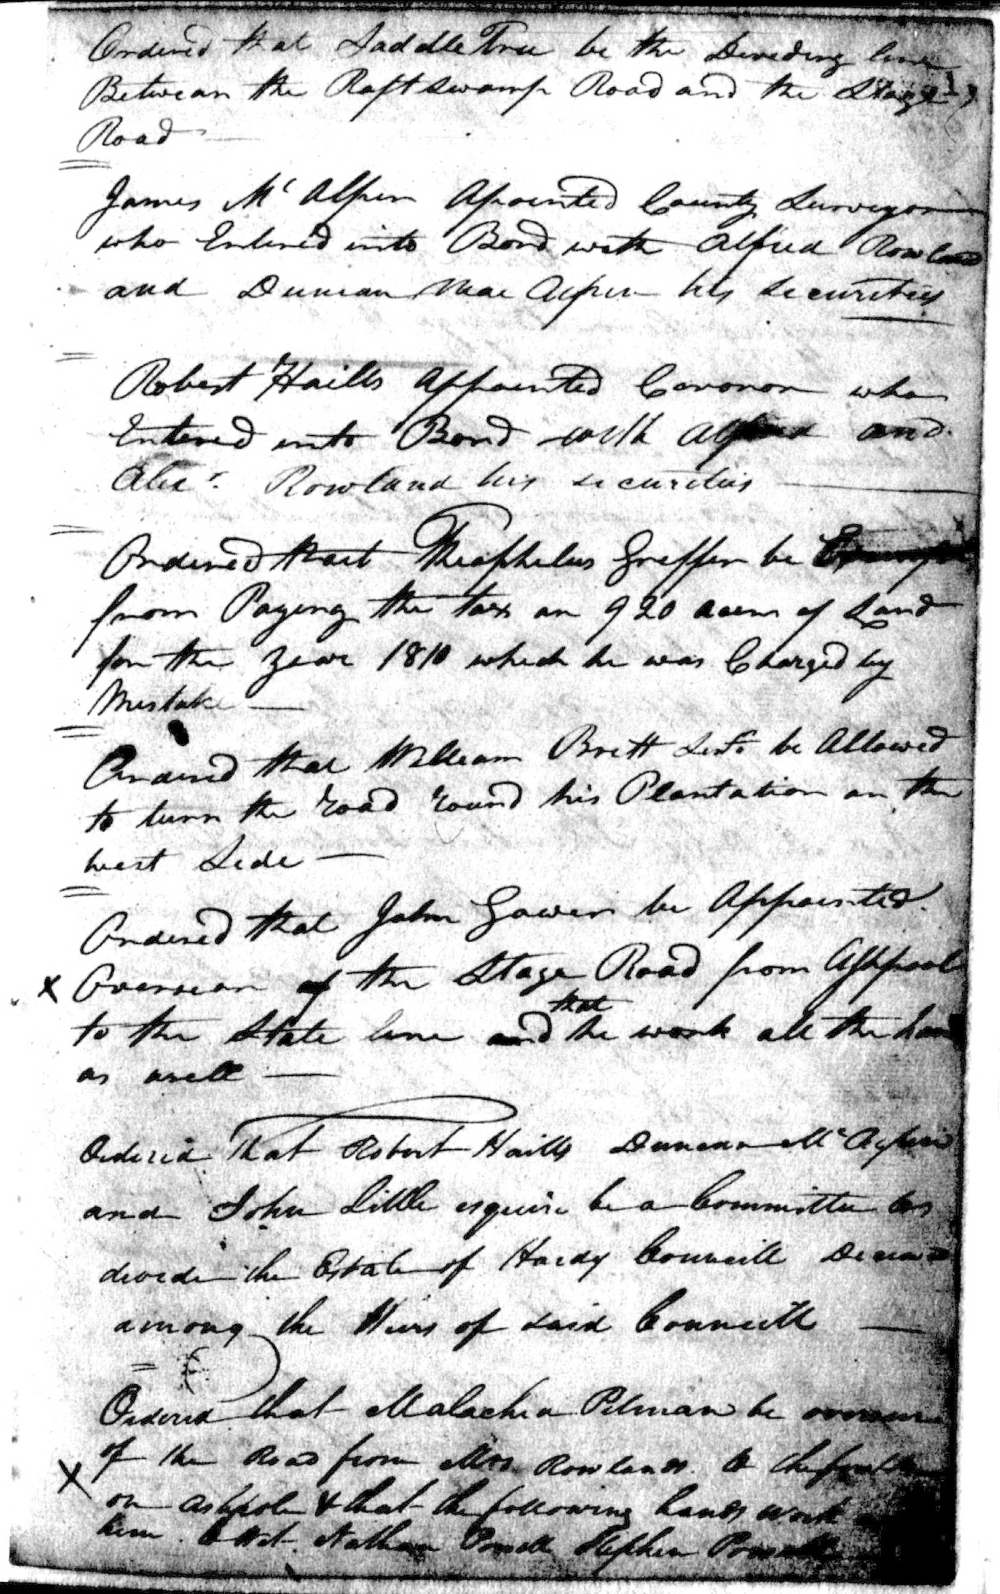 Ordered that Saddle Tree be the Deveding line
Between the Raft swamp Road and the Stage
Road
James Mc Alpin Apointed County Surveyor
who Entered into Bond with Alfred Rowland
and Duncan Mac Alpin his securities
Robert Haills Appointed Coronor who
Entered into Bond with Alfred and
Alexr. Rowland his securities
Ordered that Theophelus Greffin be
from Payeng the tax on 920 acers of Land
for the year 1810 which he was Charged by
Mistake
Ordered that William Brett Senr be Allowed
to turn the road round his Plantation on the
west Side
Ordered that John Gowen be Appointed
x Overseer of the Stage Road from Ashpool
that
to the State line and he work all the hands
as well
Ordered That Robert Haills Duncan Mc Alpin
and John Little esquire be a Committee to
devide the Estate of Hardy Councill Deceasd
among the Heirs of said Councill
Ordered that Malachia Pitman be overseer
x of the Road from Mrs Rowlands to the
on ashpole & that the following hands work
him to Wit. Nathan Powell Stephen Powell